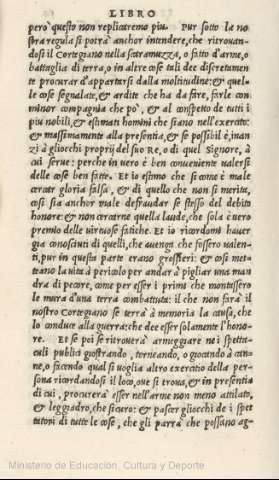 LIBRO
però questo non replicaremo piu. Pur sotto la no
stra regula si potrà anchor intendere, che ritrouan-
dosi il Cortegiano nella scaramuzza, o fatto d'arme, o
battaglia di terra, o in altre cose tali dee discretamen
te procurar d'appartarsi dalla moltitudine: & quel-
le cose segnalate, & ardite che ha da fare, farle con
minor compagnia che po', & al conspetto de tutti i
piu nobili, & estimati homini che siano nell'exercito:
& massimamente alla presentia, & se possibil è, inan
zi à gliocchi proprij del suo Re, o di quel Signore, à
cui serue: perche in uero è ben conueniente ualersi
delle cose ben fatte. Et io estimo che si come è male
cercar gloria falsa, & di quello che non si merita,
cosi sia anchor male defraudar se stesso del debito
honore: & non cercarne quella laude, che sola è uero
premio delle uirtuose fatiche. Et io ricordomi hauer
gia conosciuti di quelli, che auenga che fossero ualen-
ti, pur in questa parte erano grossieri: & cosi met-
teano la uita à pericolo per andar à pigliar una man
dra di pecore, come per esser i primi che montessero
le mura d'una terra combattuta: il che non farà il
nostro Cortegiano se terrà à memoria la causa, che
lo conduce alla guerra: che dee esser solamente l'hono-
re. Et se poi se ritrouerà armeggiare nei spetta-
culi publici giostrando, torneando, o giocando à can-
ne, o facendo qual si uoglia altro exercitio della per-
sona ricordandosi il loco, oue si troua, & in presentia
di cui, procurerà esser nell'arme non meno attilato,
& leggiadro, che sicuro: & pascer gliocchi de i spet
tatori di tutte le cose, che gli parrà che possano ag-
Ministerio de Educación, Cultura y Deporte